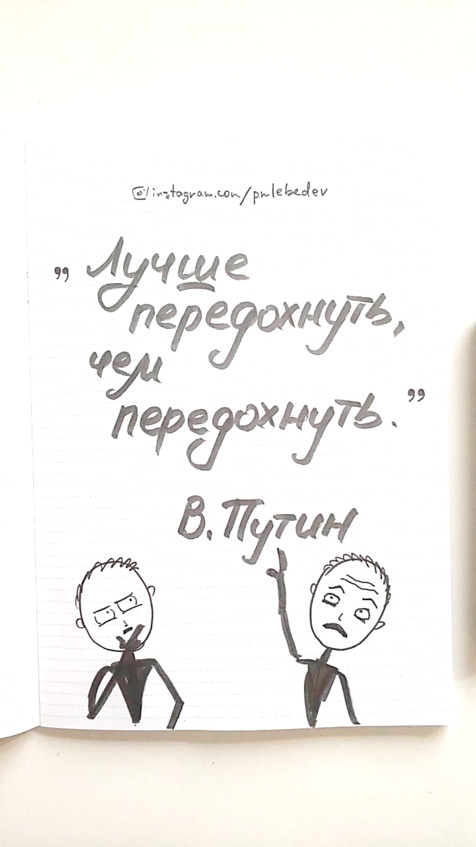 instagram.com/pmlebedev
„Лучше
передохнуть,
чем
передохнуть.”
В. Путин